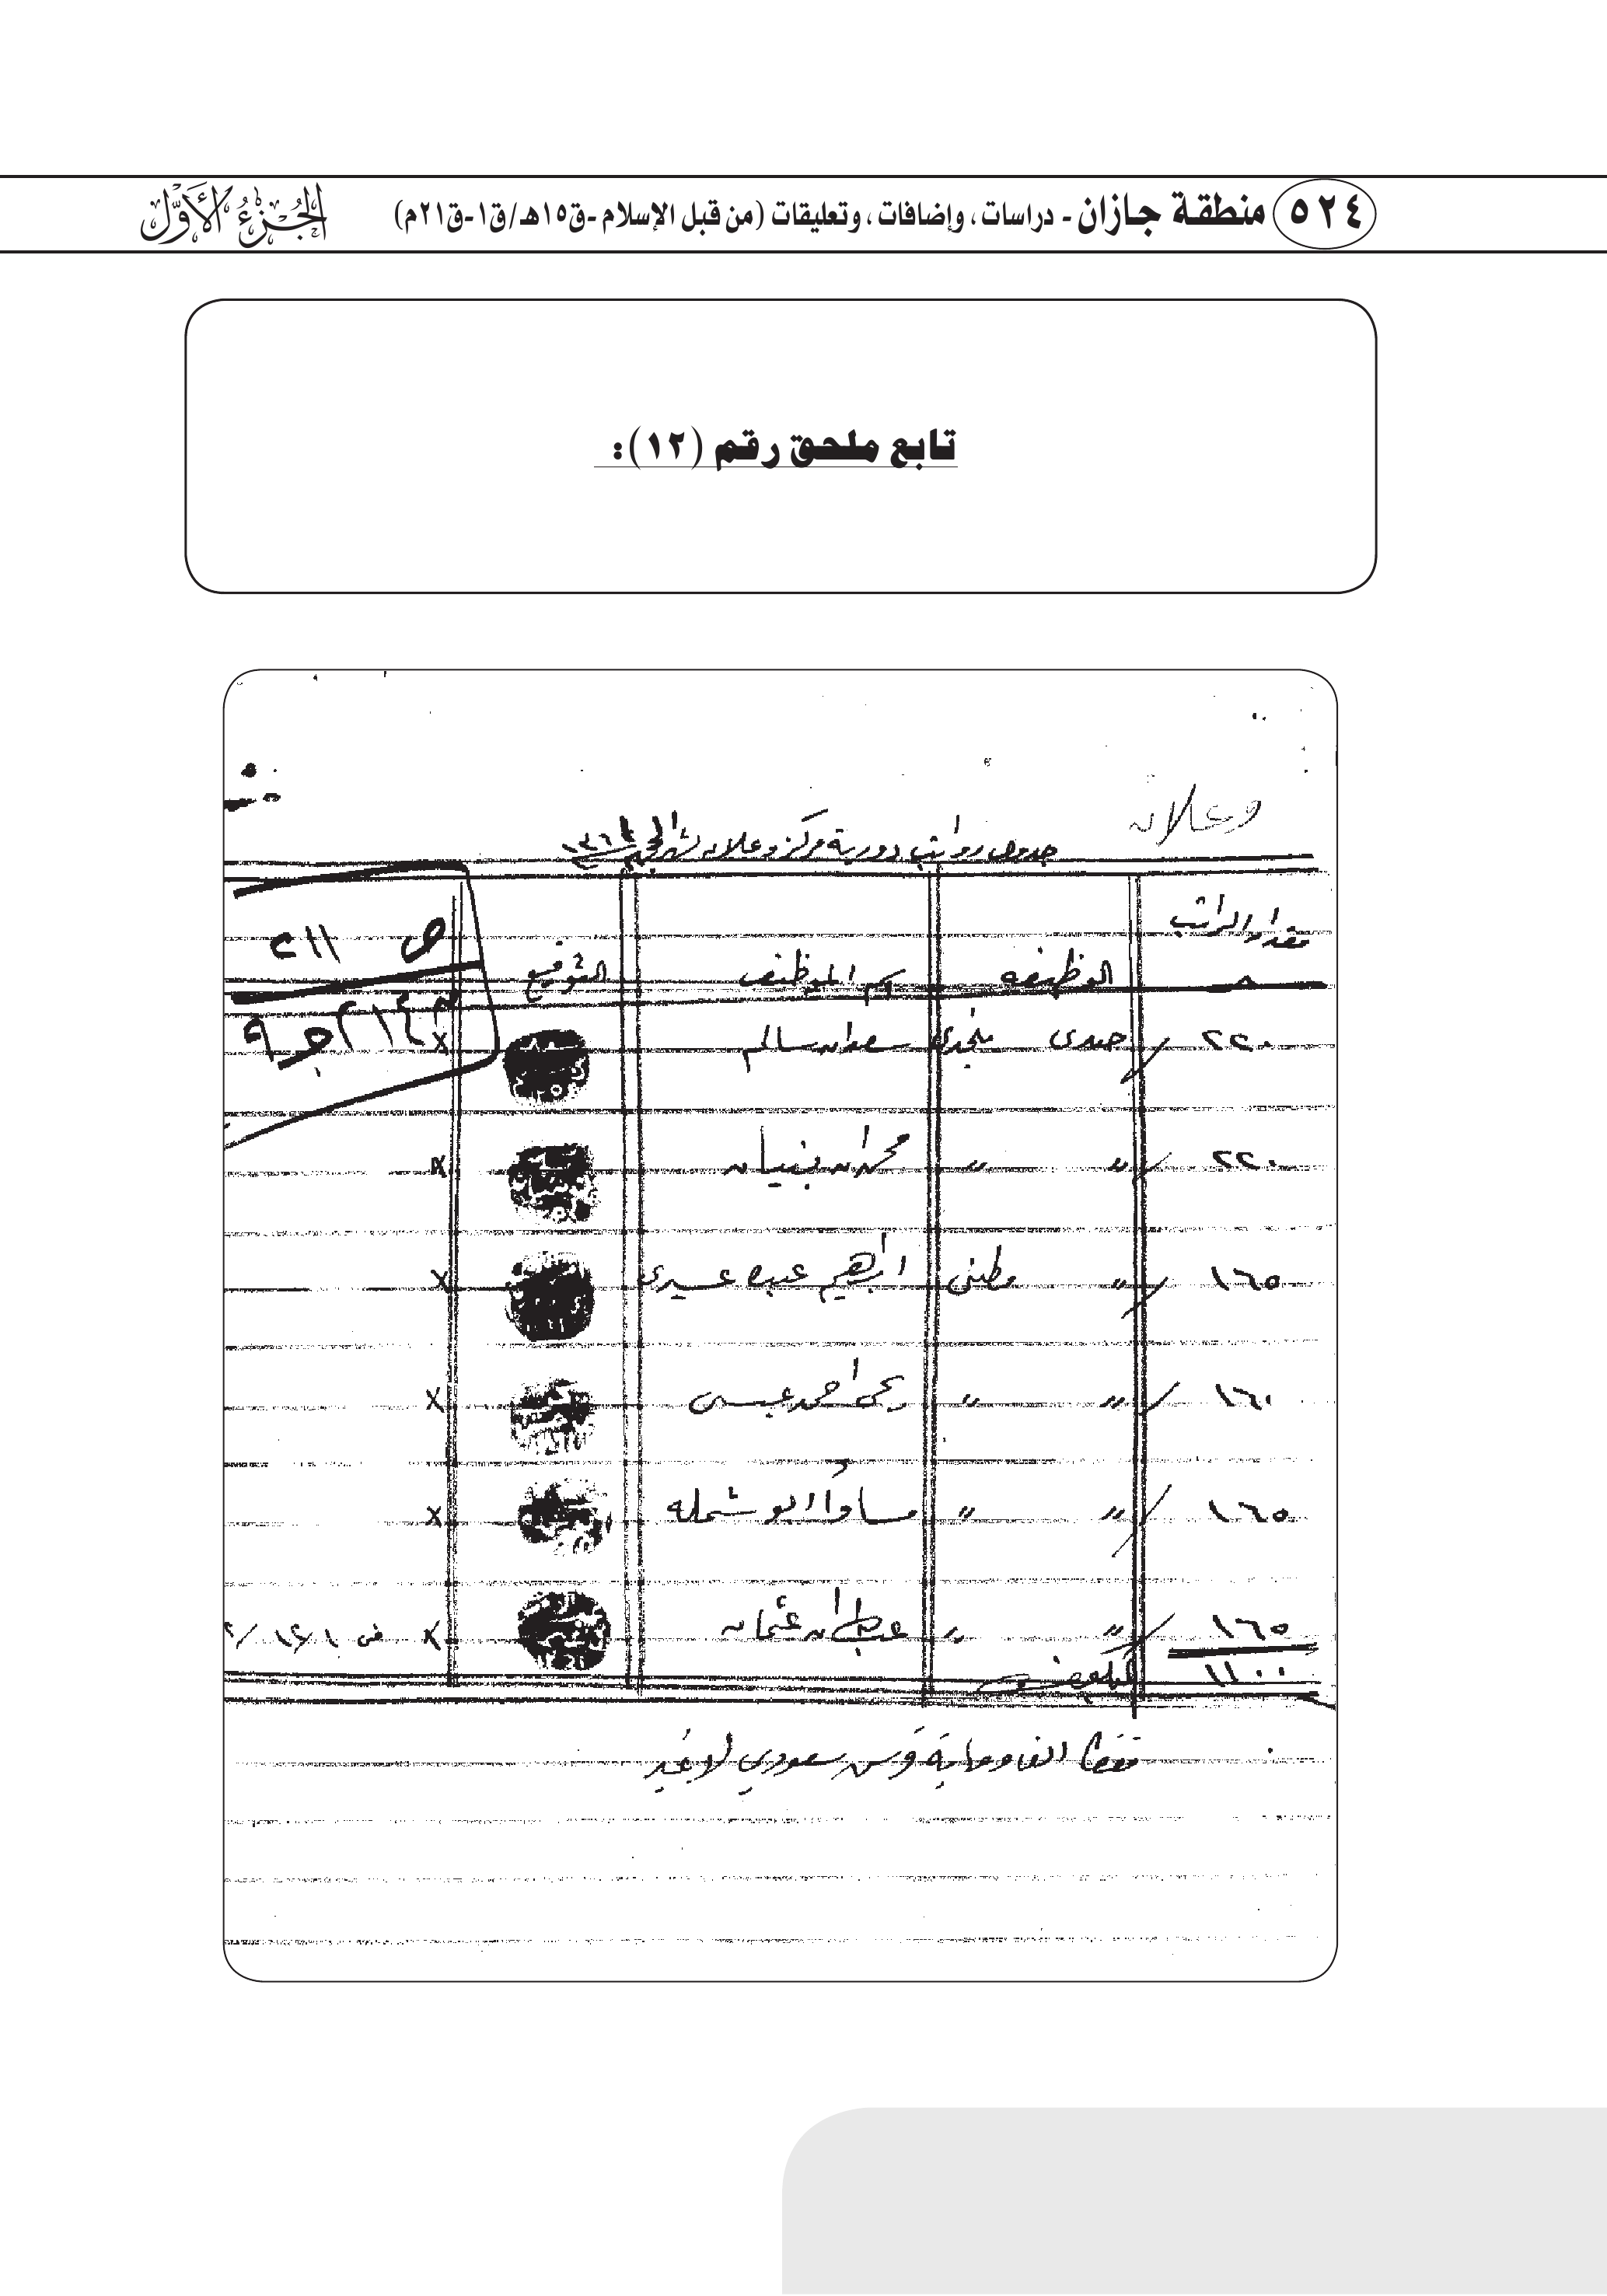 ٥٢٤ منطقة جازان - دراسات، وإضافات، وتعليقات (من قبل الإسلام -ق١٥هـ/ق١-ق٢١م) الجزء الأول
تابع ملحق رقم (١٢):
وعلان
جدول رواتب دورية مركز وعلان لشهر محرم
مقدار الراتب الوظيفه اسم الموظف التوقيع
ص ٢١١
٢٢٠ جندى نجدي سعدان سالم x
٢٢٠ " " محمد بن بنيان x
١٦٥ " وطنى ابراهيم عبده عسيرى x
١٦٠ " " يحي احمد عيسى x
١٦٥ " " مساوا ابو شمله x
١٦٥ " " عثمان x في
١١٠٠
فقط الف ومايه قرش سعودي لا غير